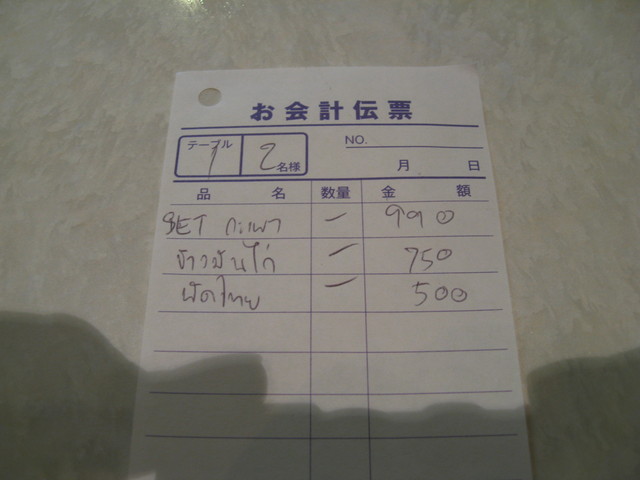 お会計伝票
テーブル 1 2名様 NO.
月 日
品名 数量 金額
SET กะเพา 一 990
ข้าวมันไก่ 一 750
ผัดไทย 一 500